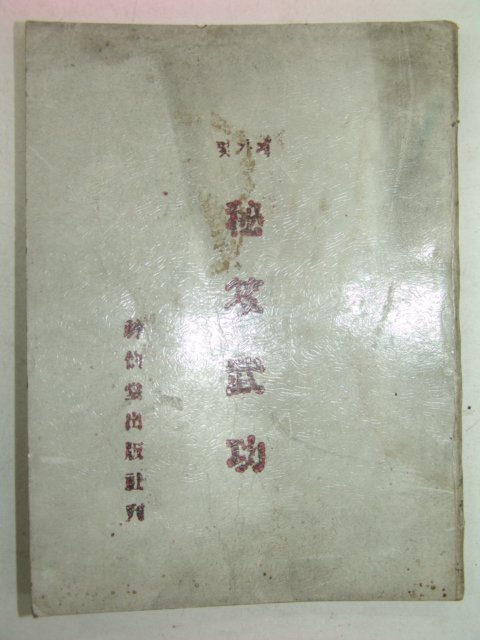 몇가지
秘笈武功
出版社刊